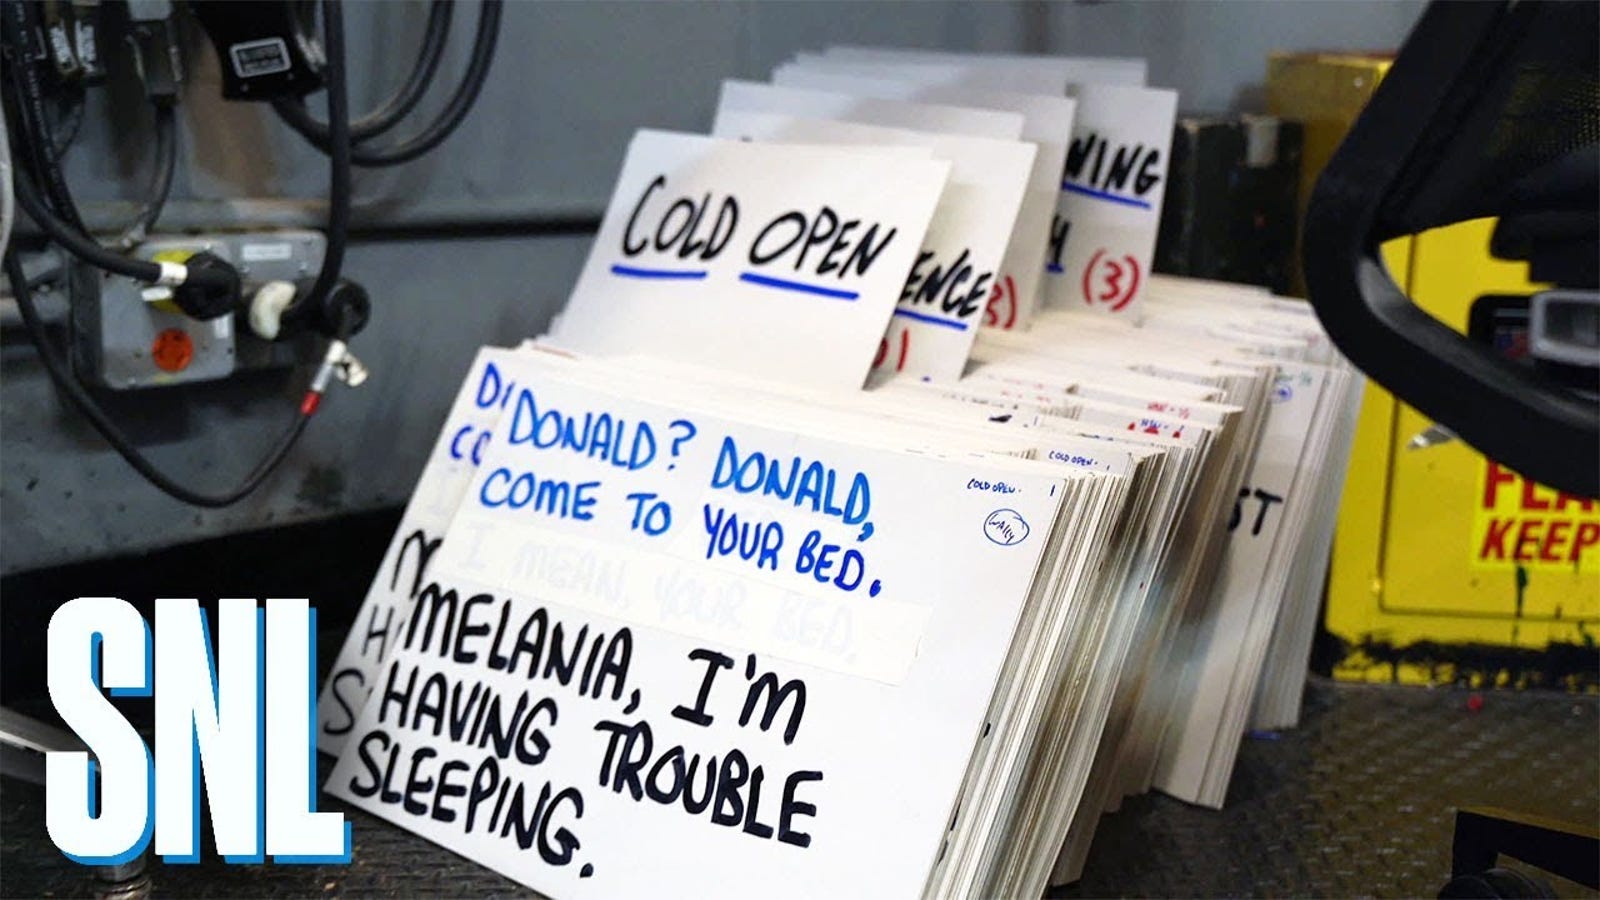 COLD OPEN
ENCE
NING
(3)
COLD OPEN - 1
COLD OPEN - 1
WALLY
DONALD? DONALD,
COME TO YOUR BED.
I MEAN, YOUR BED.
MELANIA, I'M
HAVING TROUBLE
SLEEPING.
ST
KEEP
SNL